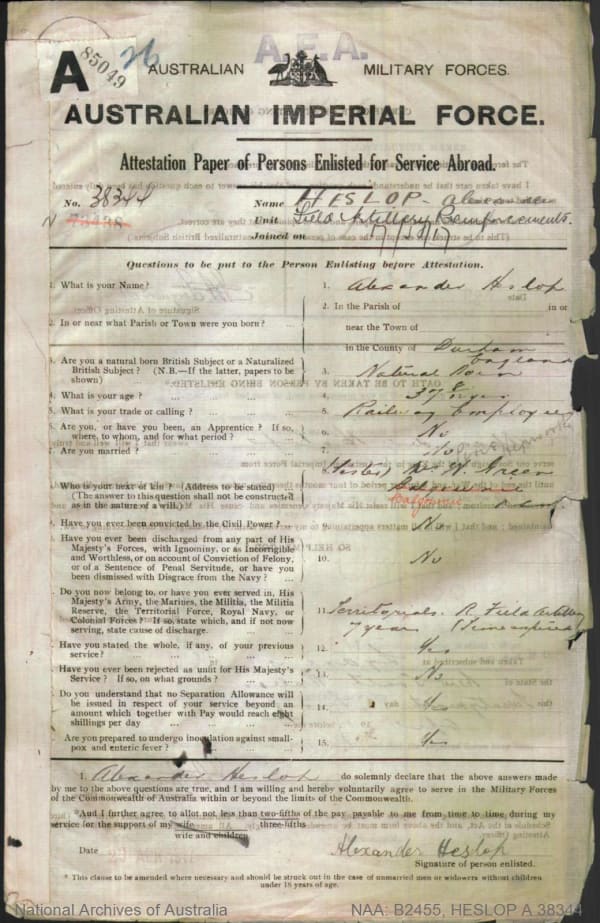 A
85049
26
A.F.A.
AUSTRALIAN MILITARY FORCES.
AUSTRALIAN IMPERIAL FORCE.
Attestation Paper of Persons Enlisted for Service Abroad.
No. 38344 Name HESLOP - Alexander
N Unit Field Artillery Reinforcements.
Joined on
Questions to be put to the Person Enlisting before Attestation.
1. What is your Name? 1. Alexander Heslop
2. In or near what Parish or Town were you born? 2. In the Parish of in or
near the Town of
in the County of Durham England
3. Are you a natural born British Subject or a Naturalized
British Subject? (N.B.—If the latter, papers to be
shown) 3. Natural Born
4. What is your age? 4. 37 8/12 yrs
5. What is your trade or calling? 5. Railway Employee
6. Are you, or have you been, an Apprentice? If so,
where, to whom, and for what period? 6. No
7. Are you married? 7. No
8. Who is your next of kin? (Address to be stated)
(The answer to this question shall not be constructed
as in the nature of a will.)
9. Have you ever been convicted by the Civil Power? No
10. Have you ever been discharged from any part of His
Majesty's Forces, with Ignominy, or as Incorrigible
and Worthless, or on account of Conviction of Felony,
or of a Sentence of Penal Servitude, or have you
been dismissed with Disgrace from the Navy? 10. No
11. Do you now belong to, or have you ever served in, His
Majesty's Army, the Marines, the Militia, the Militia
Reserve, the Territorial Force, Royal Navy, or
Colonial Forces? If so, state which, and if not now
serving, state cause of discharge. 11. Territorials. R. Field Artillery
7 years (Time expired)
Have you stated the whole, if any, of your previous
service? 12. Yes
Have you ever been rejected as unfit for His Majesty's
Service? If so, on what grounds? 13. No
Do you understand that no Separation Allowance will
be issued in respect of your service beyond an
amount which together with Pay would reach eight
shillings per day 14. Yes
Are you prepared to undergo inoculation against small-
pox and enteric fever? 15. Yes
I, Alexander Heslop do solemnly declare that the above answers made
by me to the above questions are true, and I am willing and hereby voluntarily agree to serve in the Military Forces
of the Commonwealth of Australia within or beyond the limits of the Commonwealth.
*And I further agree to allot not less than two-fifths of the pay payable to me from time to time during my
service for the support of my wife three-fifths
wife and children
Date
Alexander Heslop
Signature of person enlisted.
* This clause to be amended where necessary and should be struck out in the case of unmarried men or widowers without children
under 18 years of age.
National Archives of Australia NAA: B2455, HESLOP A 38344